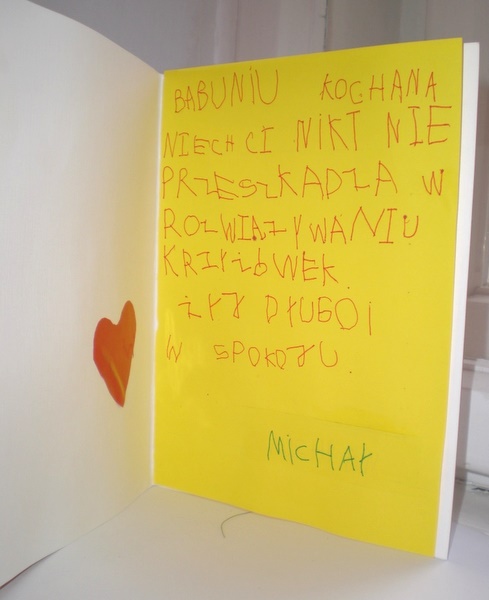 BABUNIU KOCHANA
NIECH CI NIKT NIE
PRZESZKADZA W
ROZWIĄZYWANIU
KRZYŻÓWEK.
ŻYJ DŁUGO I
W SPOKOJU.
MICHAŁ